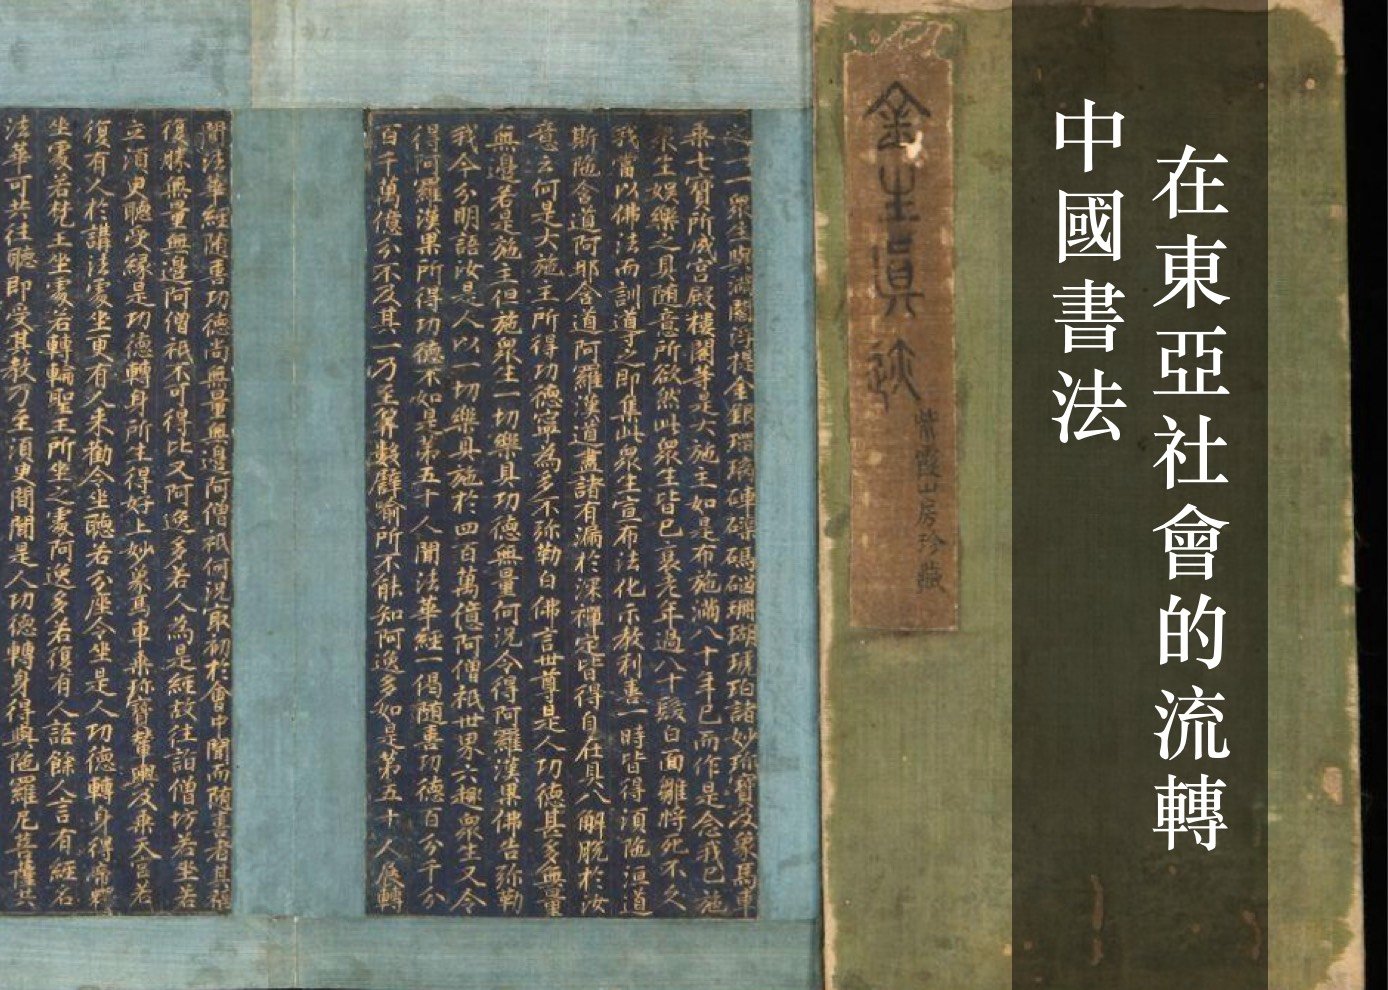 中國書法
在東亞社會的流轉
金生眞迹
紫霞山房珍藏
之一一衆生與滿閻浮提金銀琉璃硨磲碼碯珊瑚琥珀諸妙珍寶及象馬車
乘七寶所成宮殿樓閣等是大施主如是布施滿八十年已而作是念我已施
衆生娛樂之具随意所欲然此衆生皆已衰老年過八十髮白面皺將死不久
我當以佛法而訓導之即集此衆生宣布法化示教利喜一時皆得須陁洹道
斯陁含道阿那含道阿羅漢道盡諸有漏於深禪定皆得自在具八解脫於汝
意云何是大施主所得功德寧為多不弥勒白佛言世尊是人功德甚多無量
無邊若是施主但施衆生一切樂具功德無量何況令得阿羅漢果佛告弥勒
我今分明語汝是人以一切樂具施於四百萬億阿僧祇世界六趣衆生又令
得阿羅漢果所得功德不如是第五十人聞法華經一偈随喜功德百分千分
百千萬億分不及其一乃至筭數譬喻所不能知阿逸多如是第五十人展轉
聞法華經随喜功德尚無量無邊阿僧祇何況最初於會中聞而随喜者其福
復勝無量無邊阿僧祇不可得比又阿逸多若人為是經故往詣僧坊若坐若
立須臾聽受緣是功德轉身所生得好上妙象馬車乘珍寶輦輿及乘天宮若
復有人於講法處坐更有人來勸令坐聽若分座令坐是人功德轉身得帝釋
坐處若梵王坐處若轉輪聖王所坐之處阿逸多若復有人語餘人言有經名
法華可共往聽即受其教乃至須臾間聞是人功德轉身得與陁羅尼菩薩共